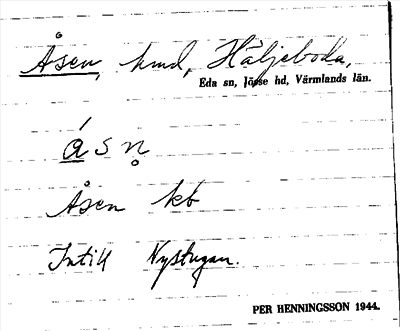 Åsen, hmd, Häljeboda,
Eda sn, Jösse hd, Värmlands län.
á s n̥
Åsen kb
Intill Nystugan.
PER HENNINGSSON 1944.